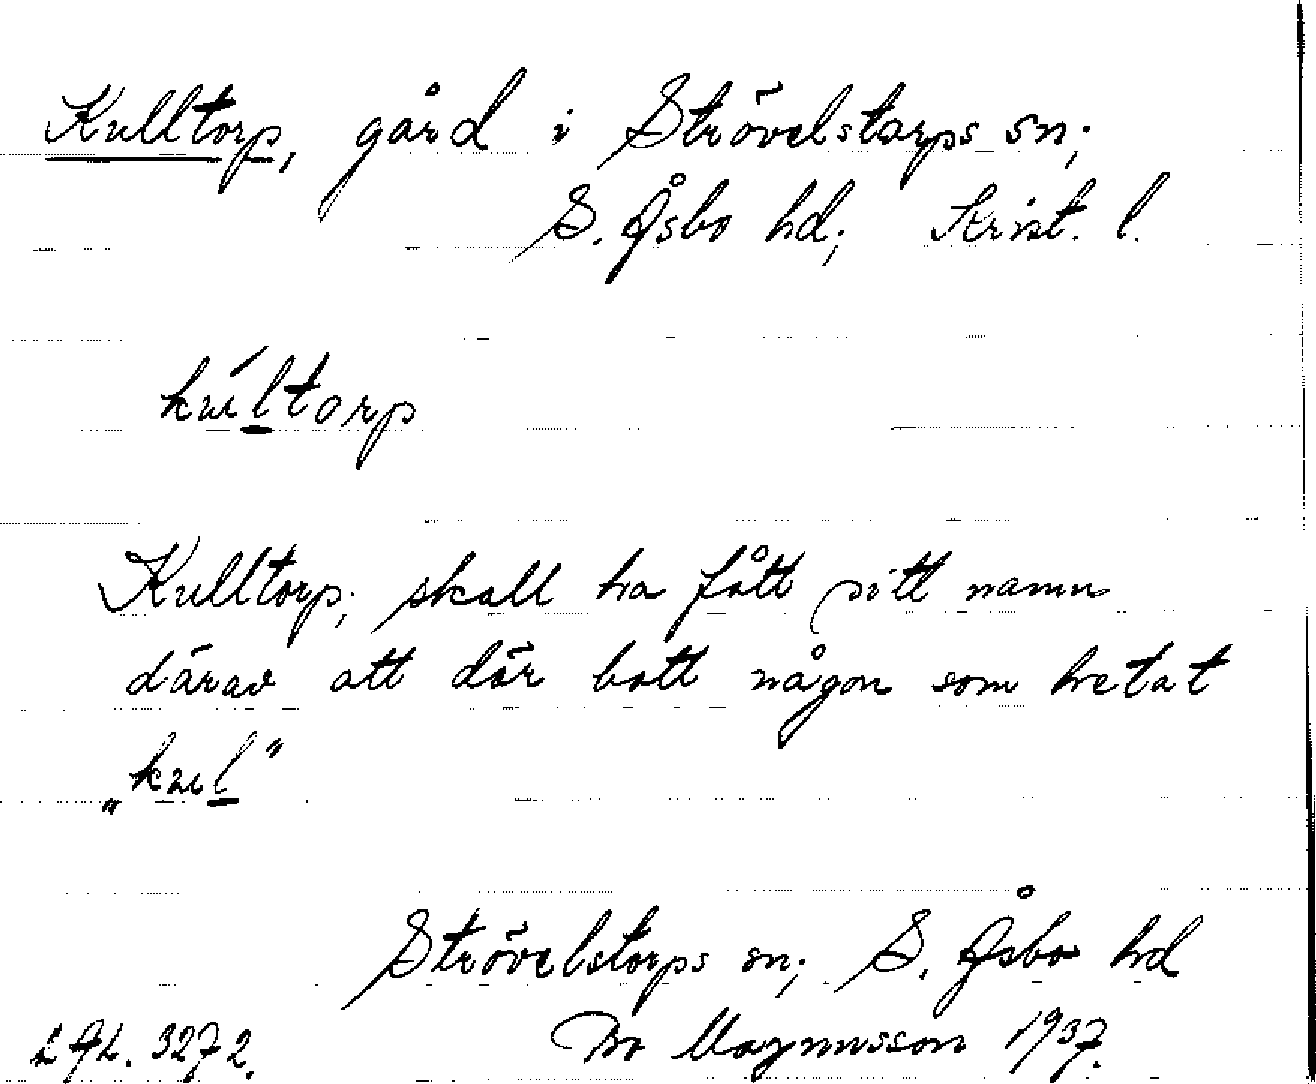 Kulltorp, gård i Strövelstorps sn;
S. Åsbo hd; Krist. l.
kúltorp
Kulltorp; skall ha fått sitt namn
därav att där bott någon som hetat
„kul"
Strövelstorps sn; S. Åsbo hd
Bo Magnusson 1937.
LAL. 3272.